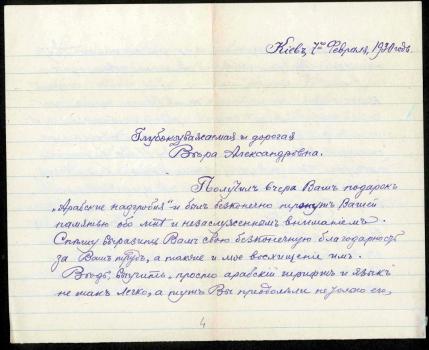 Кіевъ, 7го Февраля, 1930 годъ.
Глубокоуважаемая и дорогая
Вѣра Александровна.
Получилъ вчера Вашъ подарокъ
„Арабские надгробия" и былъ безконечно тронутъ Вашей
памятью обо мнѣ и незаслуженном вниманіемъ.
Спѣшу выразить Вамъ свою безконечную благодарность
за Вашъ трудъ, а также и мое восхищение имъ.
Вѣдь, выучить просто арабскій шрифтъ и языкъ
не такъ легко, а тутъ Вы преодолѣли не только его,
4